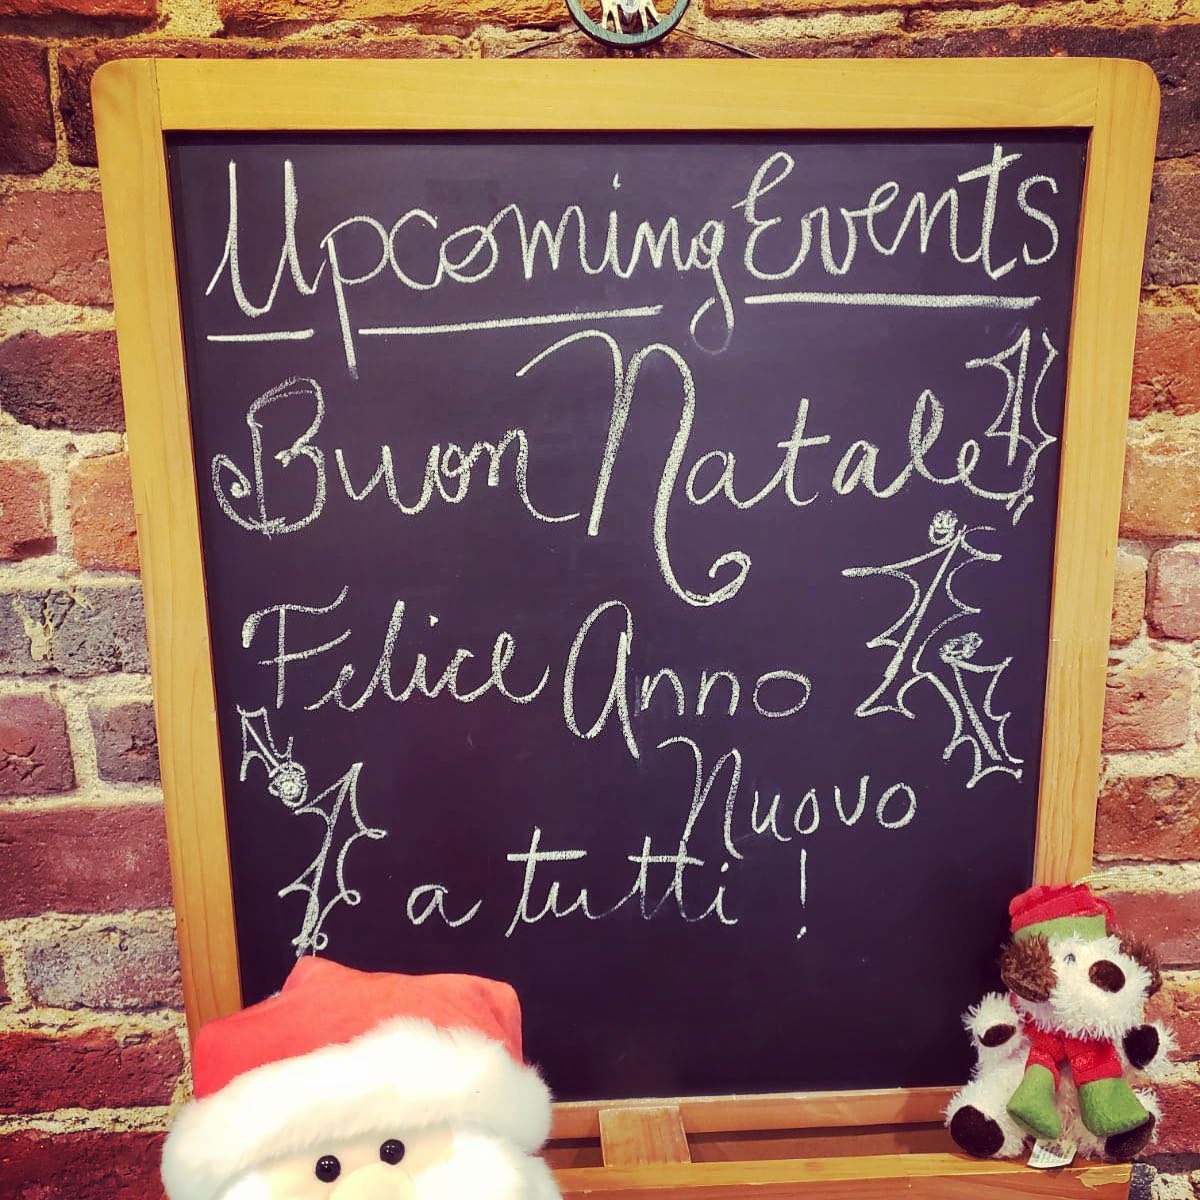 Upcoming Events
Buon Natale
Felice Anno
Nuovo
a tutti !